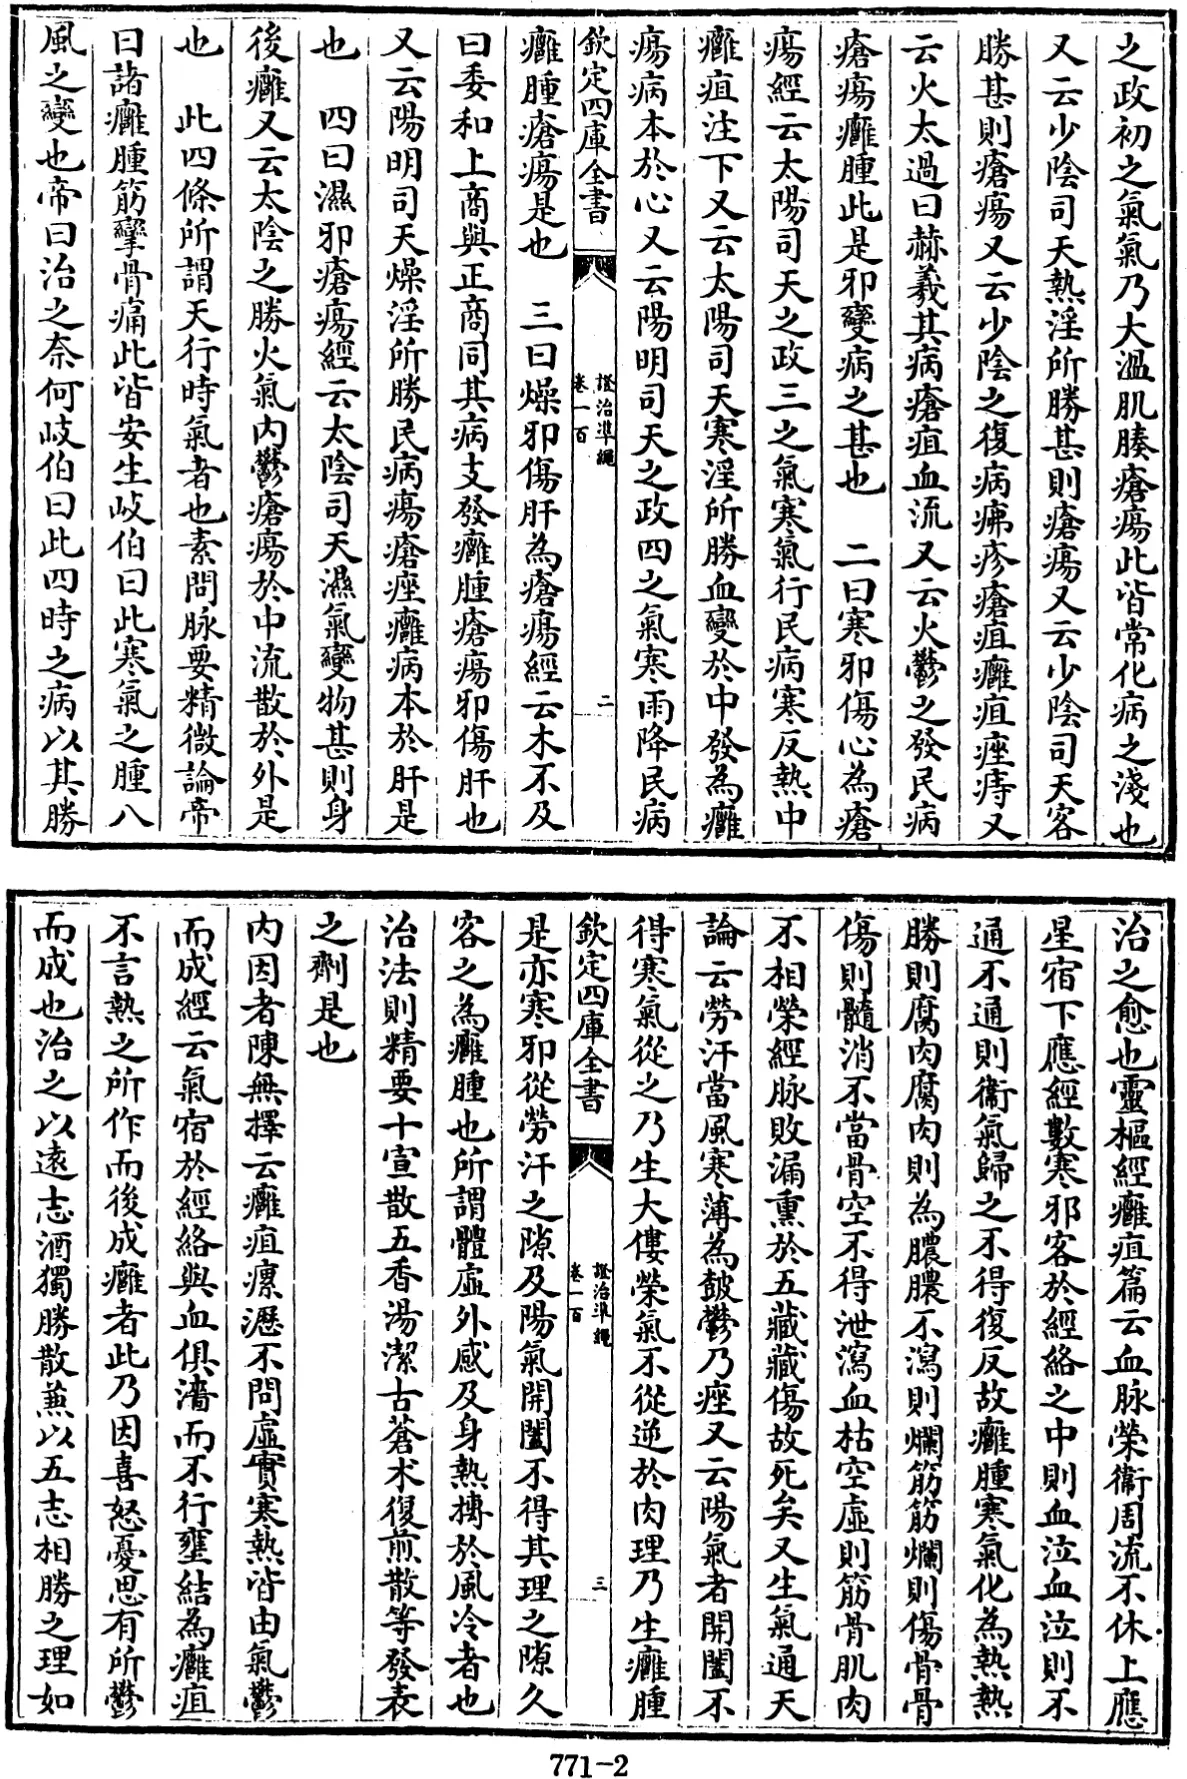 之政初之氣氣乃大溫肌腠瘡瘍此皆常化病之淺也
又云少陰司天熱淫所勝甚則瘡瘍又云少陰司天客
勝甚則瘡瘍又云少陰之復病疿疹瘡疽癰疽痤痔又
云火太過曰赫羲其病瘡疽血流又云火鬱之發民病
瘡瘍癰腫此是邪變病之甚也　二曰寒邪傷心為瘡
瘍經云太陽司天之政三之氣寒氣行民病寒反熱中
癰疽注下又云太陽司天寒淫所勝血變於中發為癰
瘍病本於心又云陽明司天之政四之氣寒雨降民病
欽定四庫全書
證治準繩
卷一百
二
癰腫瘡瘍是也　三曰燥邪傷肝為瘡瘍經云木不及
曰委和上商與正商同其病支發癰腫瘡瘍邪傷肝也
又云陽明司天燥淫所勝民病瘍瘡痤癰病本於肝是
也　四曰濕邪瘡瘍經云太陰司天濕氣變物甚則身
後癰又云太陰之勝火氣內鬱瘡瘍於中流散於外是
也　此四條所謂天行時氣者也素問脉要精微論帝
曰諸癰腫筋攣骨痛此皆安生岐伯曰此寒氣之腫八
風之變也帝曰治之奈何岐伯曰此四時之病以其勝
治之愈也靈樞經癰疽篇云血脉榮衞周流不休上應
星宿下應經數寒邪客於經絡之中則血泣血泣則不
通不通則衞氣歸之不得復反故癰腫寒氣化為熱熱
勝則腐肉腐肉則為膿膿不瀉則爛筋筋爛則傷骨骨
傷則髓消不當骨空不得泄瀉血枯空虛則筋骨肌肉
不相榮經脉敗漏熏於五藏藏傷故死矣又生氣通天
論云勞汗當風寒薄為皶鬱乃痤又云陽氣者開闔不
得寒氣從之乃生大僂榮氣不從逆於肉理乃生癰腫
欽定四庫全書
證治準繩
卷一百
三
是亦寒邪從勞汗之隙及陽氣開闔不得其理之隙久
客之為癰腫也所謂體虛外感及身熱摶於風冷者也
治法則精要十宣散五香湯潔古蒼术復煎散等發表
之劑是也
內因者陳無擇云癰疽瘰瀝不問虛實寒熱皆由氣鬱
而成經云氣宿於經絡與血俱濇而不行壅結為癰疽
不言熱之所作而後成癰者此乃因喜怒憂思有所鬱
而成也治之以遠志酒獨勝散兼以五志相勝之理如
771-2